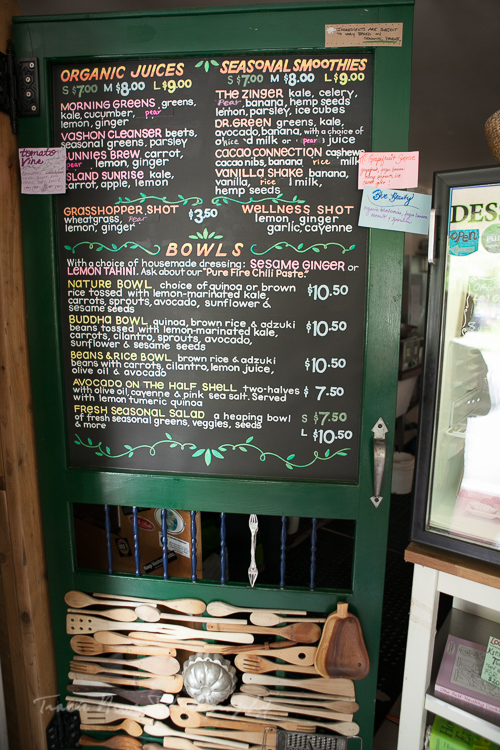 Ingredients are subject to vary based on
ORGANIC JUICES
S $7.00 M $8.00 L $9.00
MORNING GREENS greens,
kale, cucumber, pear
lemon, parsley
VASHON CLEANSER beets,
seasonal greens, parsley
BUNNIES BREW carrot,
pear, lemon, ginger
ISLAND SUNRISE kale,
carrot, apple, lemon
SEASONAL SMOOTHIES
S $7.00 M $8.00 L $9.00
THE ZINGER kale, celery,
pear, banana, hemp seeds
lemon, parsley, ice cubes
DR. GREEN greens, kale,
avocado, banana, with a choice of
milk or pear juice
CACAO CONNECTION cashews
cacao nibs, banana rice milk
VANILLA SHAKE banana,
vanilla, rice milk,
hemp seeds
tomato
vine
Grapefruit
Blue Beauty
GRASSHOPPER SHOT
wheatgrass, pear
lemon, ginger
$3.50
WELLNESS SHOT
lemon, ginger
garlic, cayenne
BOWLS
With a choice of housemade dressing: SESAME GINGER or
LEMON TAHINI. Ask about our "Pure Fire Chili Paste."
NATURE BOWL choice of quinoa or brown
rice tossed with lemon-marinated kale,
carrots, sprouts, avocado, sunflower &
sesame seeds
$10.50
BUDDHA BOWL quinoa, brown rice & adzuki
beans tossed with lemon-marinated kale,
carrots, cilantro, sprouts, avocado,
sunflower & sesame seeds
$10.50
BEANS & RICE BOWL brown rice & adzuki
beans with carrots, cilantro, lemon juice,
olive oil & avocado
$10.50
AVOCADO ON THE HALF SHELL two-halves
with olive oil, cayenne & pink sea salt. Served
with lemon tumeric quinoa
$7.50
FRESH SEASONAL SALAD a heaping bowl
of fresh seasonal greens, veggies, seeds
& more
S $7.50
L $10.50
DES
open